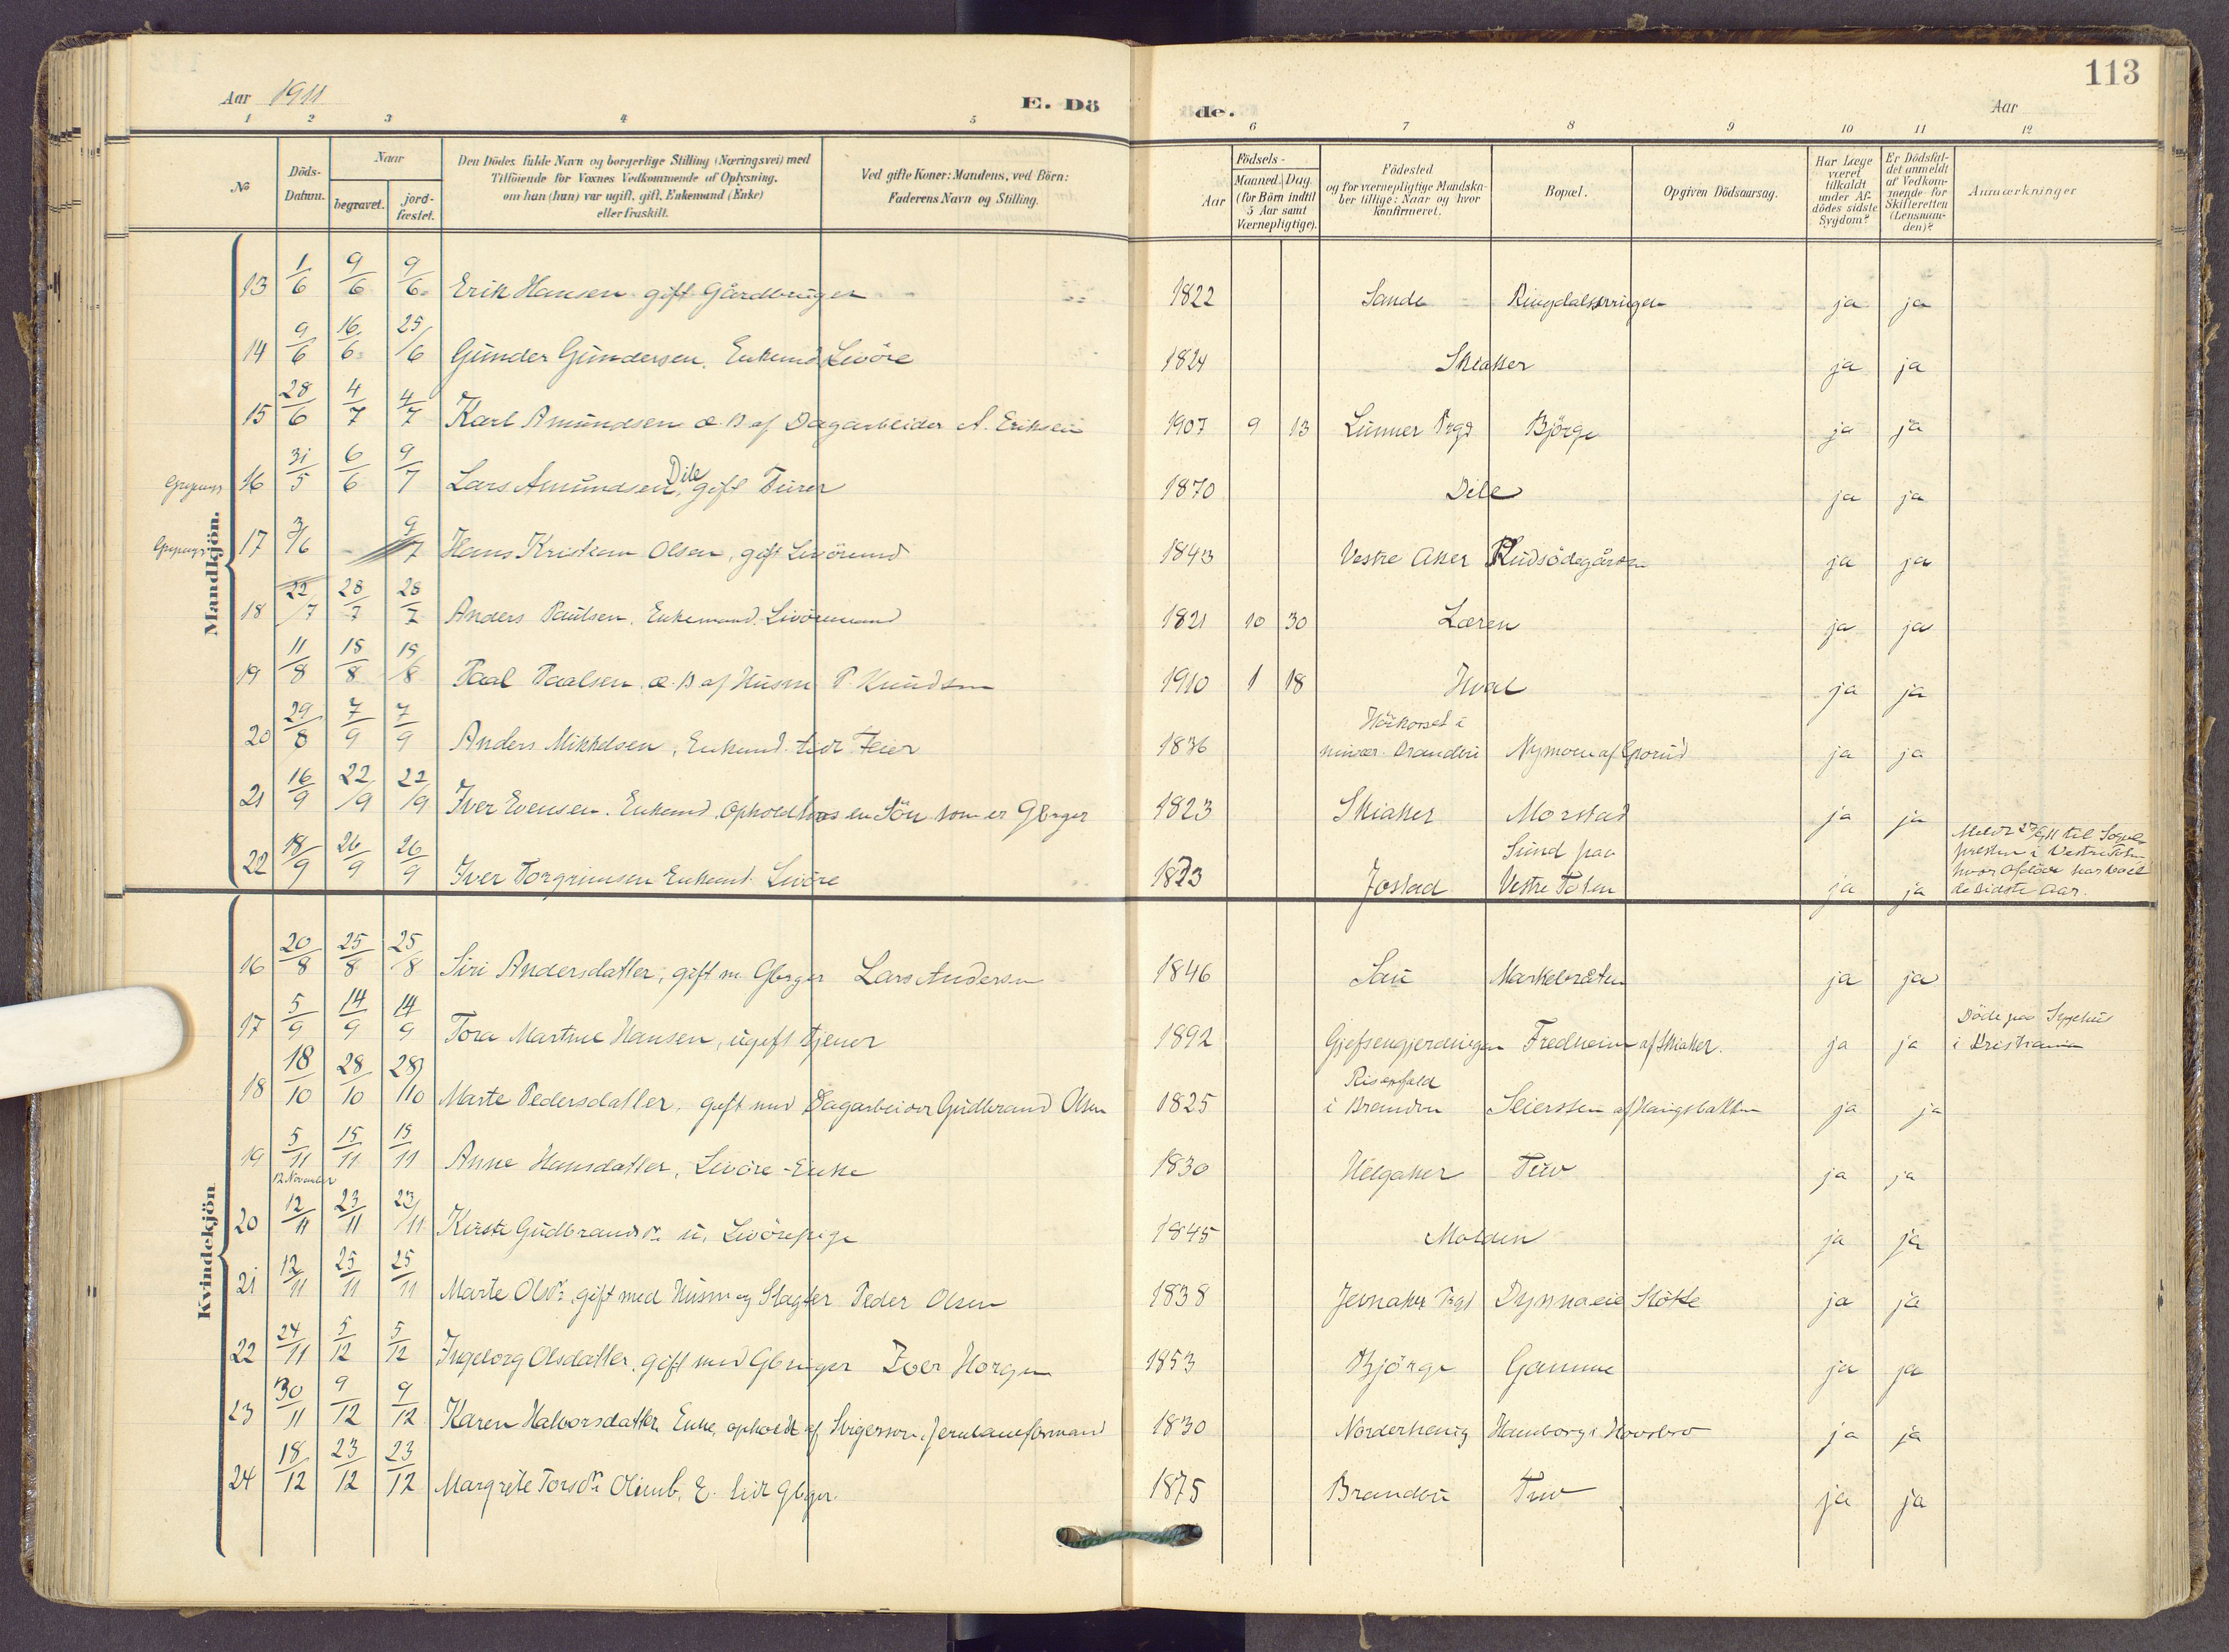 113
Aar 1911 E. Döde. Aar
1 2 3 4 5 6 7 8 9 10 11 12
No
Döds-Datum.
Naar
begravet.
jordfæstet.
Den Dödes fulde Navn og borgerlige Stilling (Næringsvei) med
Tilföiende for Voxnes Vedkommende af Oplysning,
om han (hun) var ugift, gift, Enkemand (Enke)
eller fraskilt.
Ved gifte Koner: Mandens, ved Börn:
Faderens Navn og Stilling.
Födsels-
Aar
Maaned. Dag.
(for Börn indtil
5 Aar samt
Værnepligtige).
Födested
og for værnepligtige Mandska-
ber tillige: Naar og hvor
konfirmeret.
Bopæl.
Opgiven Dödsaarsag.
Har Læge
været
tilkaldt
under Af-
dödes sidste
Sygdom?
Er Dödsfal-
det anmeldt
af Vedkom-
mende for
Skifteretten
(Lensman-
den)?
Anmærkninger
Mandkjön.
13 1/6 9/6 9/6 Erik Hansen gift Gårdbruger 1822 Sande ja ja
14 9/6 16/6 25/6 Gunder Gundersen, Enkemd Levöre 1824 Skiaker ja ja
15 28/6 4/7 4/7 Karl Amundsen æ. B af Dagarbeider A. Eriksen 1907 9 13 Lunner Prgd Björge ja ja
16 31/5 6/6 9/7 Lars Amundsen Dile, gift 1870 Dile ja ja
17 3/6 - 9/7 Hans Kristian Olsen, gift 1843 Vestre Aker Rudsödegården ja ja
18 22/7 28/7 28/7 Anders Paulsen, Enkemand. 1821 10 30 Læren ja ja
19 11/8 15/8 15/8 Paal Paalsen æ. B af Husm P. Knudsen 1910 1 18 Hval ja ja
20 29/8 7/9 7/9 Anders Mikkelsen, Enkemd. 1836 nuvær. Brandbu Nymoen af ja ja
21 16/9 22/9 22/9 Iver Evensen. Enkemd, Ophold hos en Sön som er Gbrger 1823 Skiaker Morstad ja ja
22 18/9 26/9 26/9 Iver Torgrimsen Enkemd Levöre 1823 Jostad Sund paa
Vestre Toten ja ja
til Sogne
presten i Vestre Toten
hvor Afdöde har boet
de sidste Aar.
Kvindekjön
16 20/8 25/8 25/8 Siri Andersdatter, gift m. Gbrger Lars Andersen 1846 ja ja
17 5/9 14/9 14/9 Tora Martine Hansen, ugift tjener 1892 Gjefsengjerdingen Fredheim af Skiaker. ja ja Döde paa Sygehus
i Kristiania
18 18/10 28/10 28/10 Marte Pedersdatter, gift med Dagarbeider Gudbrand Olsen 1825
i Brandbu af ja ja
19 5/11 15/11 15/11 Anne Hansdatter, Levöre-Enke 1830 Helgaker Tuv ja ja
12 November
20 12/11 23/11 23/11 Kirsti Gudbrandsdr. u. Levörepige 1845 Molden ja ja
21 12/11 25/11 25/11 Marte Olsdr. gift med Husm og Slagter Peder Olsen 1838 Jevnaker Prgd Dynnaeie ja ja
22 24/11 5/12 5/12 Ingeborg Olsdatter, gift med Gbruger Iver Horgen 1853 Björge Gamme ja ja
23 30/11 9/12 9/12 Karen Halvorsdatter Enke, opholdt af Svigersøn, Jernbaneformand 1830 Norderhaug ja ja
24 18/12 23/12 23/12 Margrete Torsdr. E. 1875 Brandbu Tuv ja ja